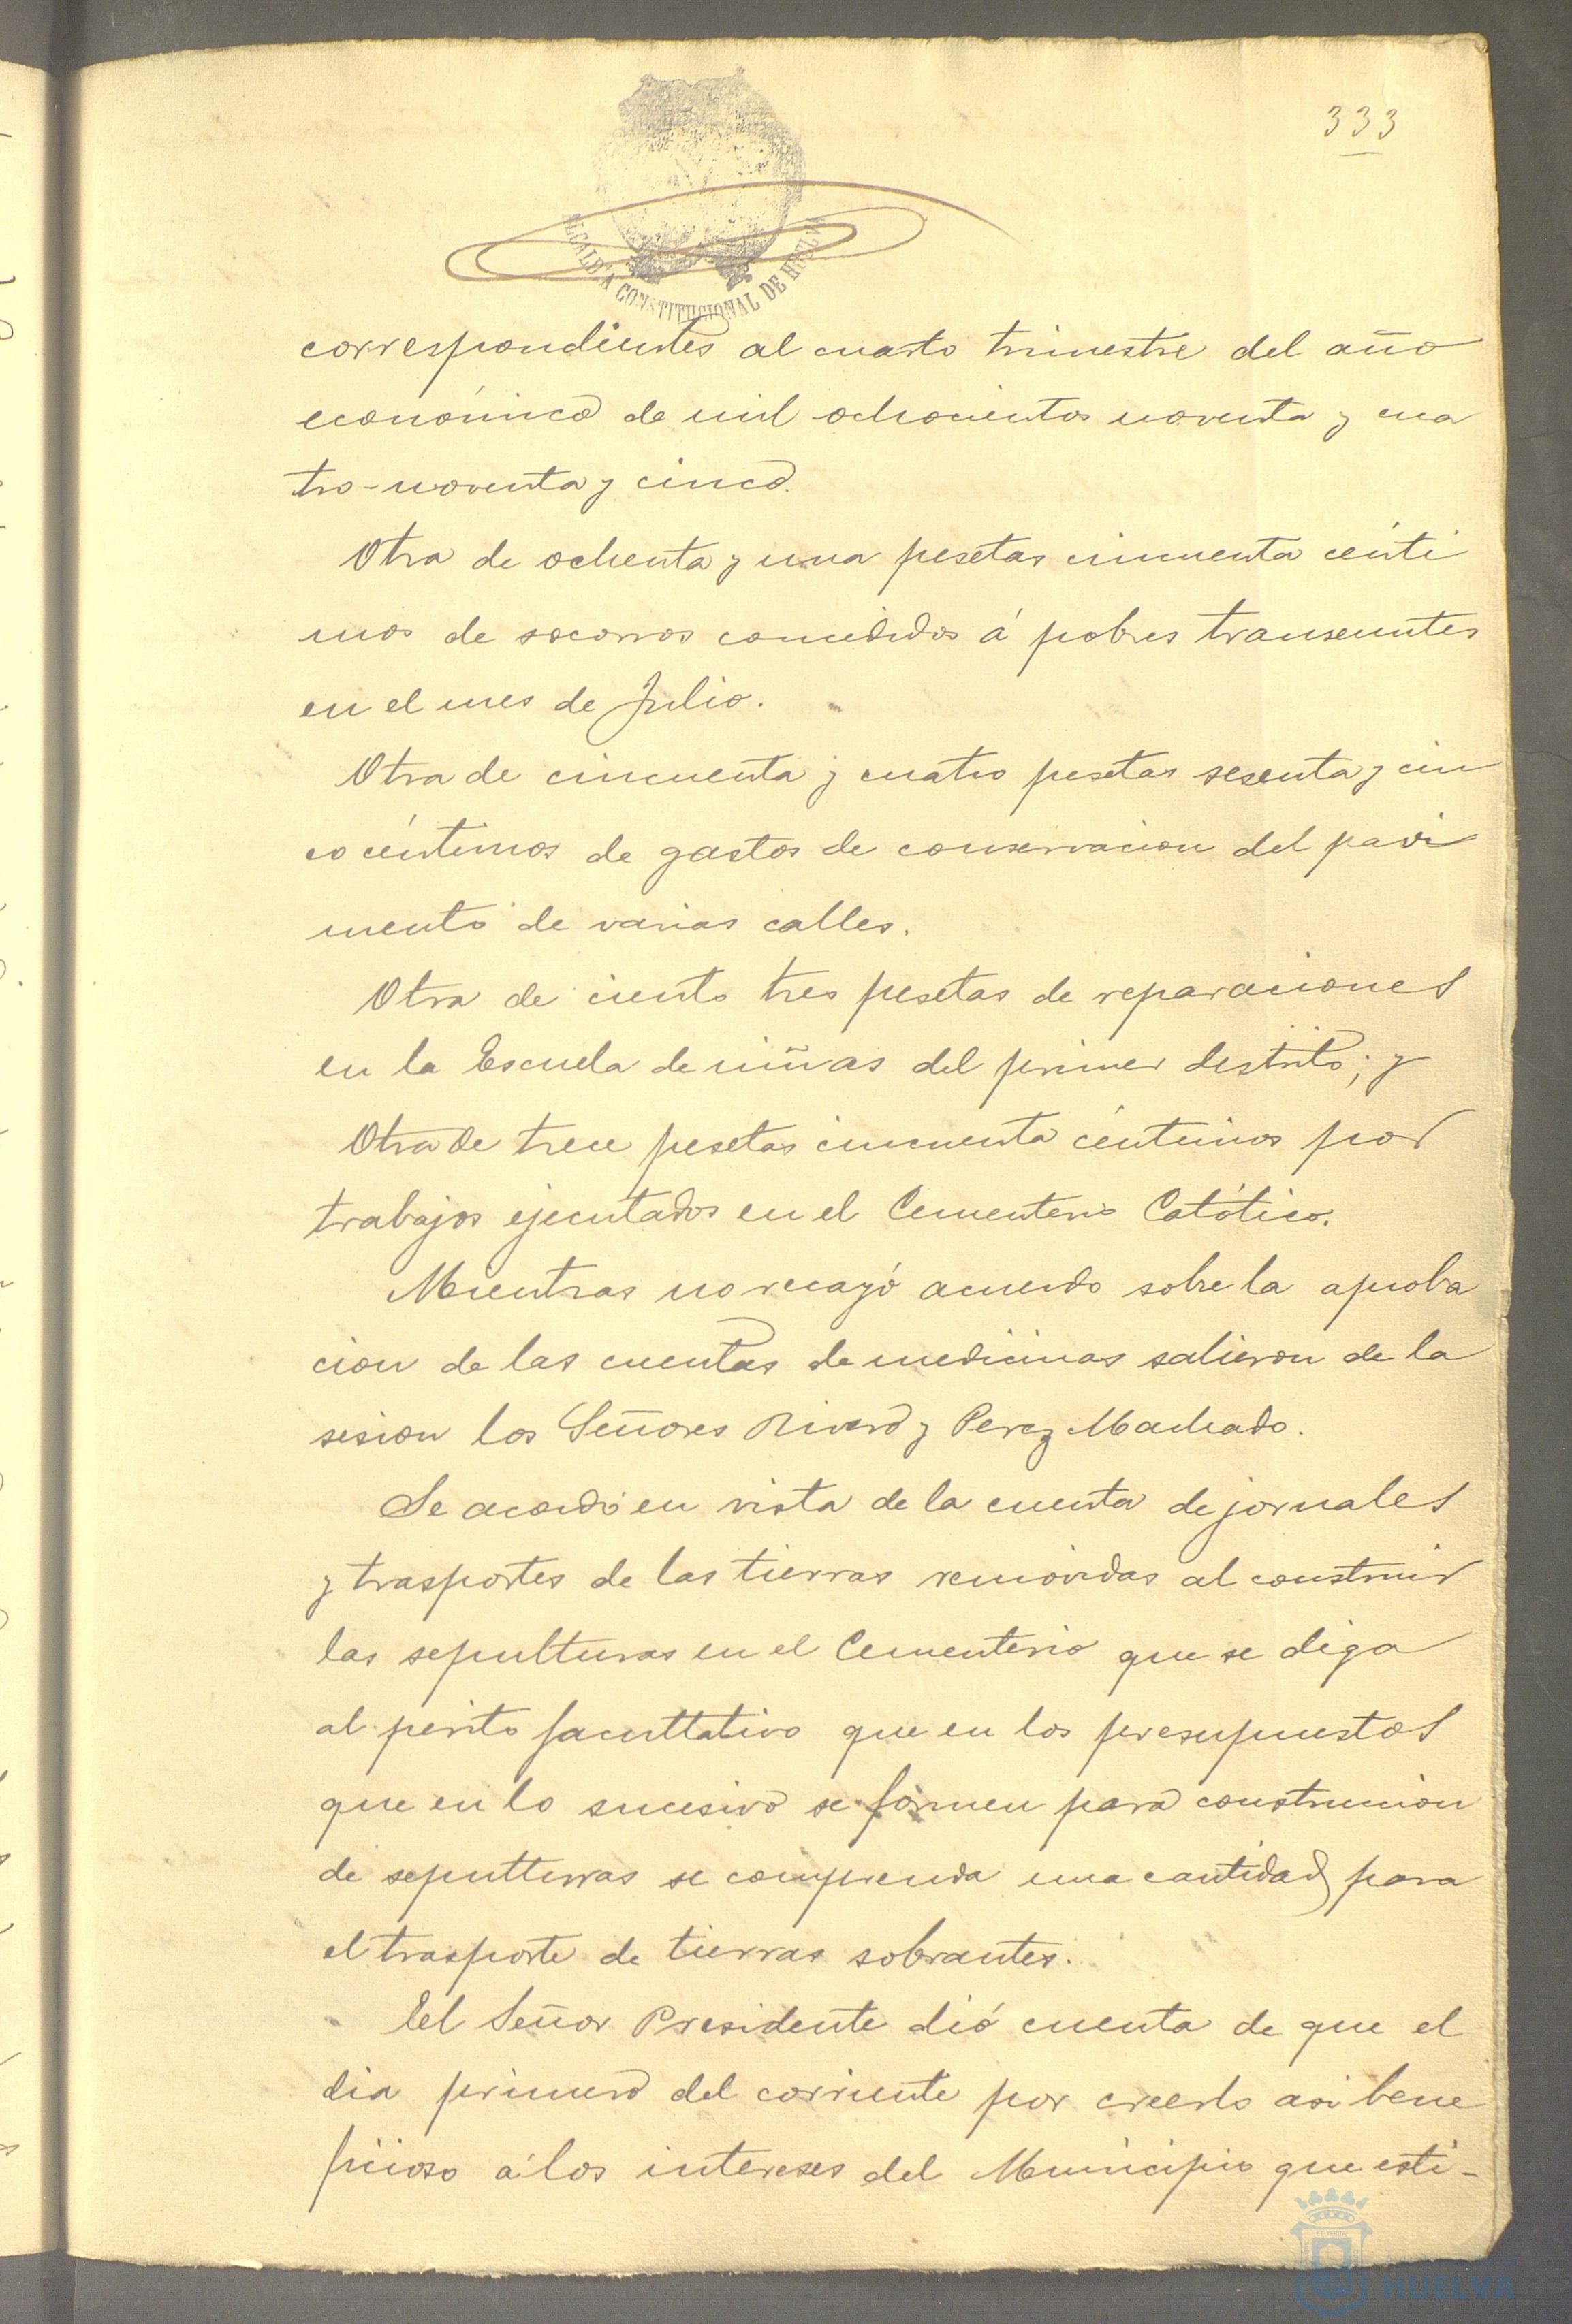 333
ALCALDÍA CONSTITUCIONAL DE HUELVA
correspondientes al cuarto trimestre del año
económico de mil ochocientos noventa y cua
tro-noventa y cinco.
Otra de ochenta y una pesetas cincuenta cénti
mos de socorros concedidos á pobres transeuntes
en el mes de Julio.
Otra de cincuenta y cuatro pesetas sesenta y cin
co céntimos de gastos de conservacion del pavi
mento de varias calles.
Otra de ciento tres pesetas de reparaciones
en la Escuela de niñas del primer destrito; y
Otra de trece pesetas cincuenta céntimos por
trabajos ejecutados en el Cementerio Católico.
Mientras no recayó acuerdo sobre la aproba
cion de las cuentas de medicinas salieron de la
sesion los Señores Rivero y Perez Machado.
Se acordó en vista de la cuenta de jornales
y trasportes de las tierras removidas al construir
las sepulturas en el Cementerio que se diga
al perito facultativo que en los presupuestos
que en lo sucesivo se formen para construccion
de sepulturas se comprenda una cantidad para
el trasporte de tierras sobrantes.
El Señor Presidente dió cuenta de que el
dia primero del corriente por creerlo asi bene
ficioso á los intereses del Municipio que esti-
HUELVA